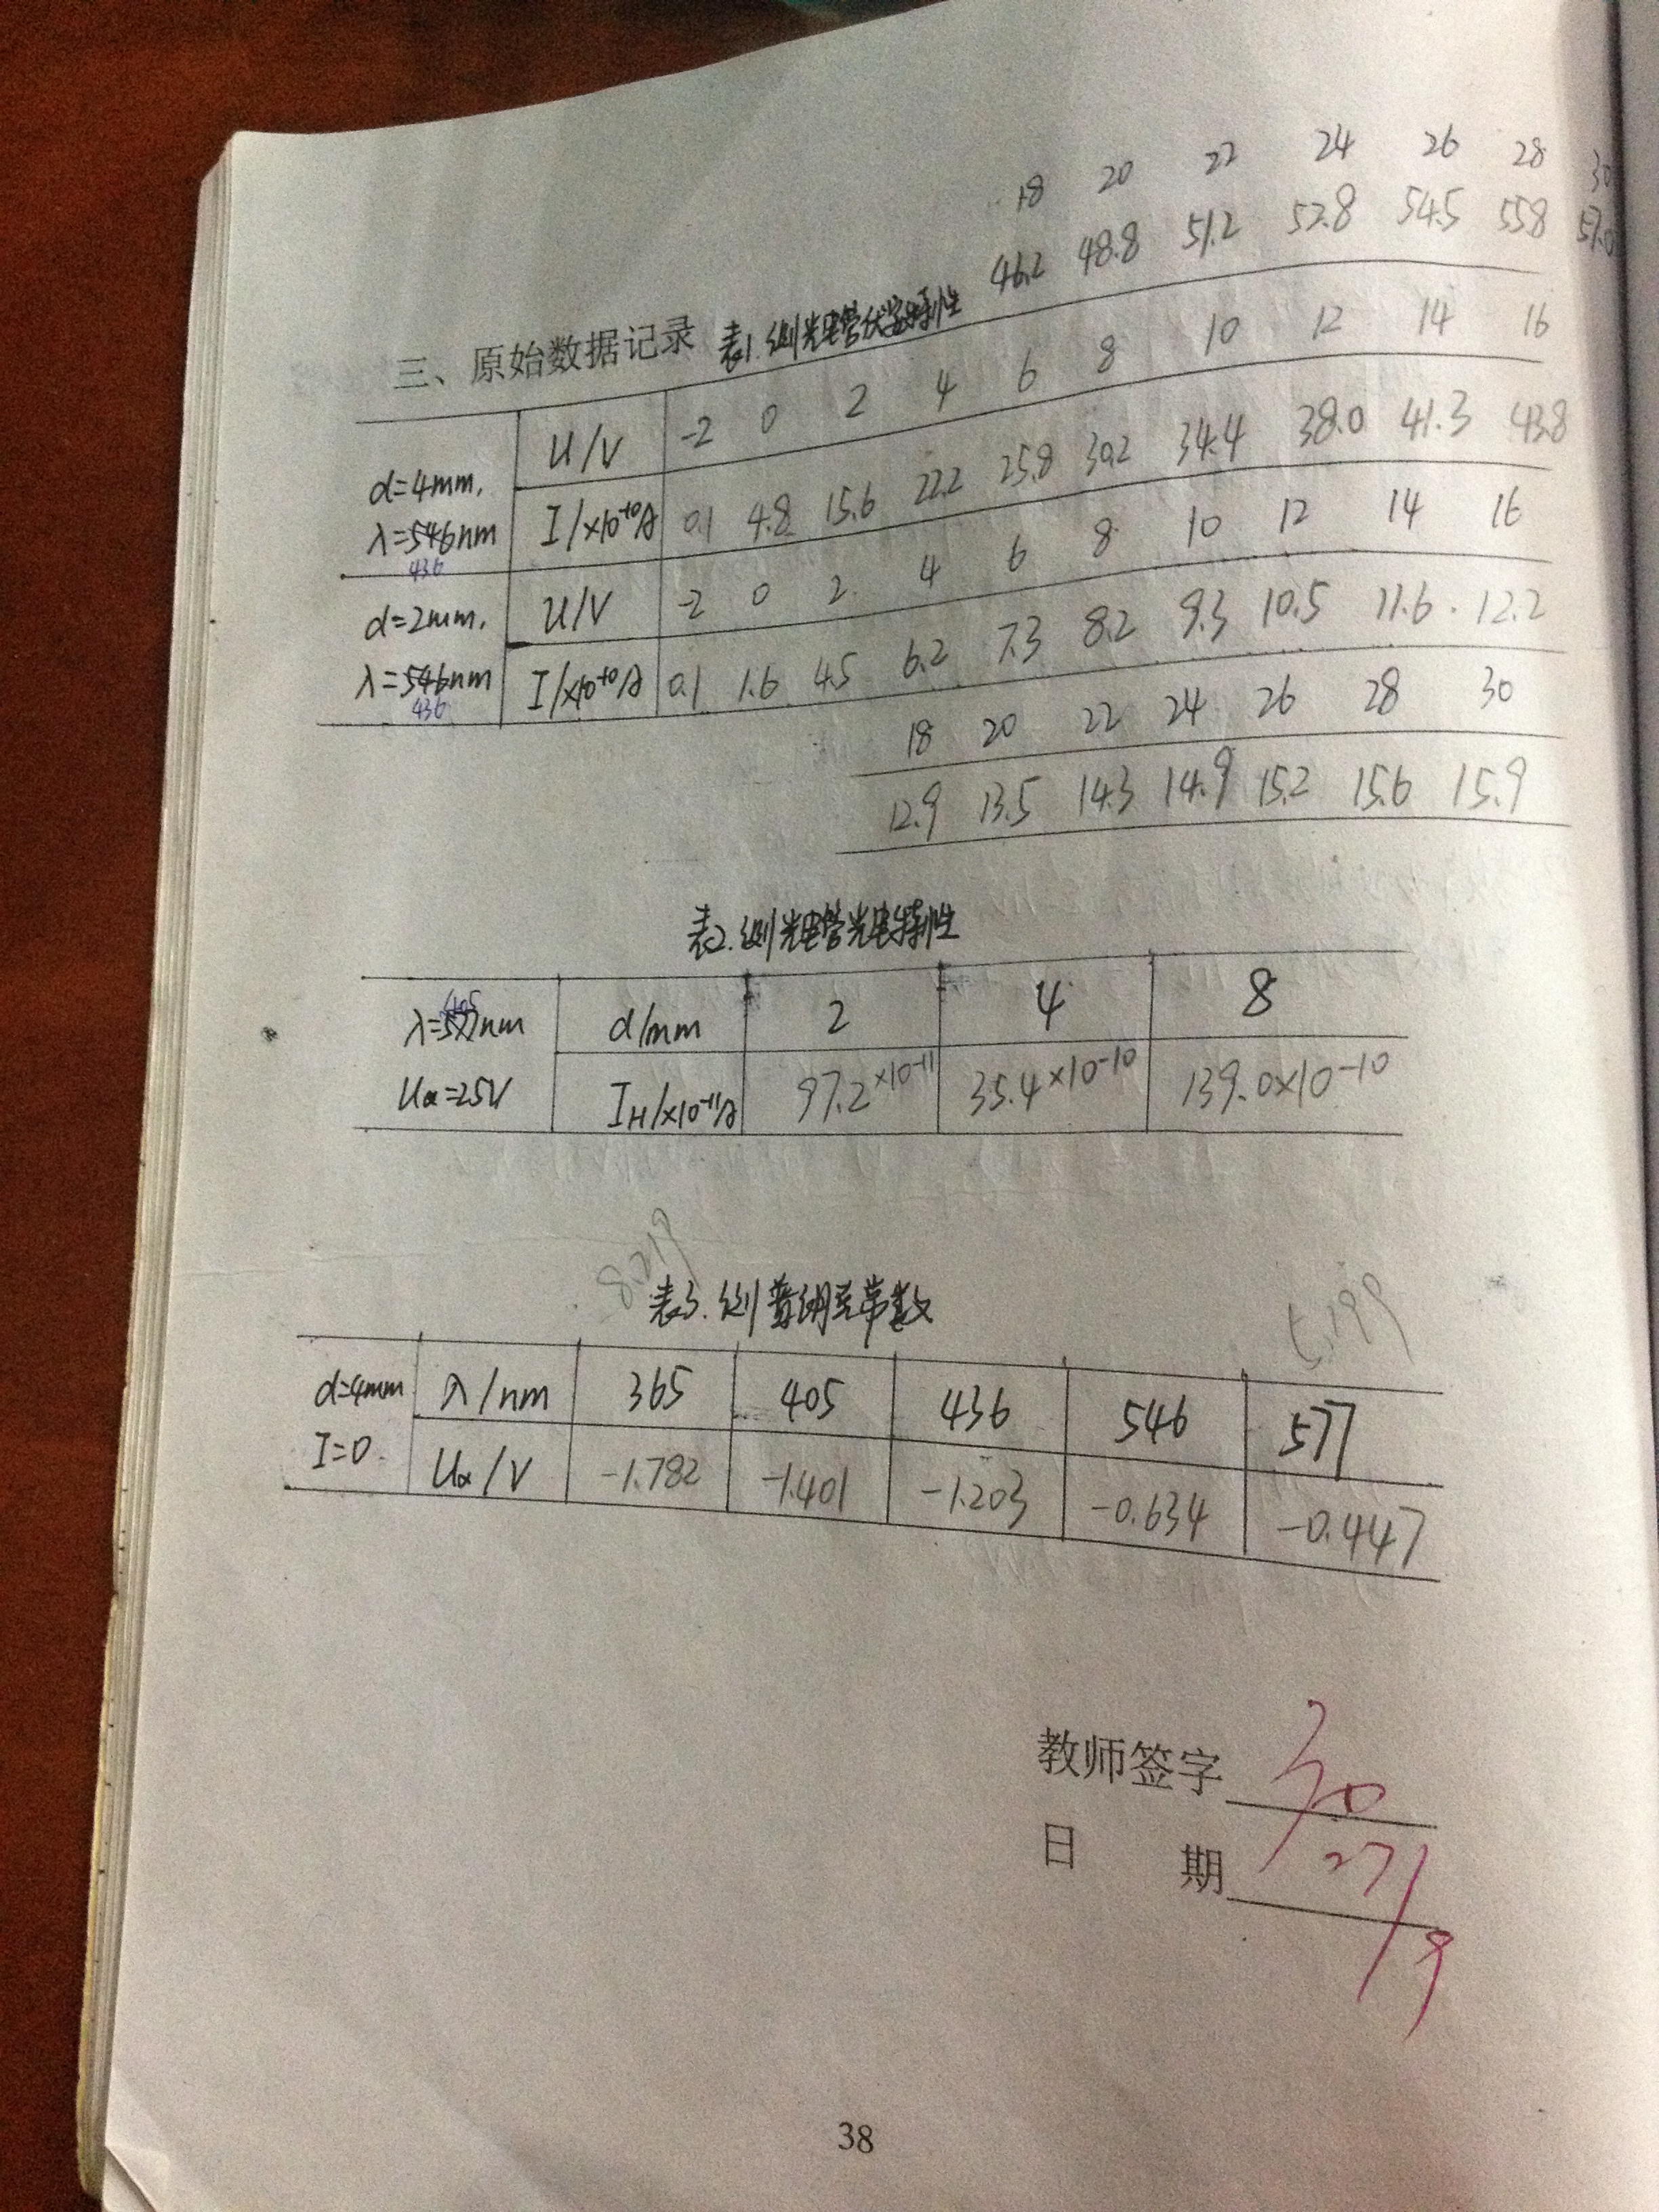 18 20 22 24 26 28 30
46.2 48.8 51.2 52.8 54.5 55.8 57.0
三、原始数据记录 表1.测光电管伏安特性
U/V -2 0 2 4 6 8 10 12 14 16
d=4mm,
λ=546nm
436
I/×10⁻¹⁰A 0.1 4.8 15.6 22.2 25.8 30.2 34.4 38.0 41.3 43.8
d=2mm,
λ=546nm
436
U/V -2 0 2 4 6 8 10 12 14 16
I/×10⁻¹⁰A 0.1 1.6 4.5 6.2 7.3 8.2 9.3 10.5 11.6 12.2
18 20 22 24 26 28 30
12.9 13.5 14.3 14.9 15.2 15.6 15.9
表2.测光电管光电特性
405
λ=577nm d/mm 2 4 8
Uα=25V I_H/×10⁻¹¹A 97.2×10⁻¹¹ 35.4×10⁻¹⁰ 139.0×10⁻¹⁰
8.219
表3.测普朗克常数
5.199
d=4mm λ/nm 365 405 436 546 577
I=0. Uα/V -1.782 -1.401 -1.203 -0.634 -0.447
教师签字
日 期 27/9
38